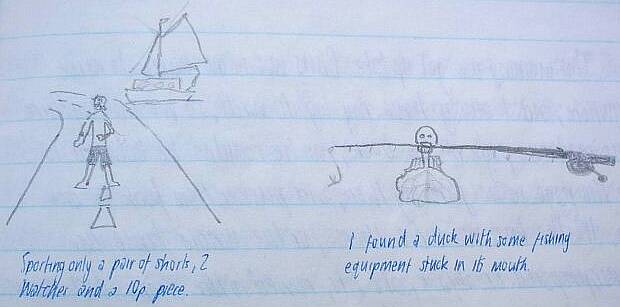 Sporting only a pair of shorts, 2
Watches and a 10p piece.
I found a duck with some fishing
equipment stuck in its mouth.